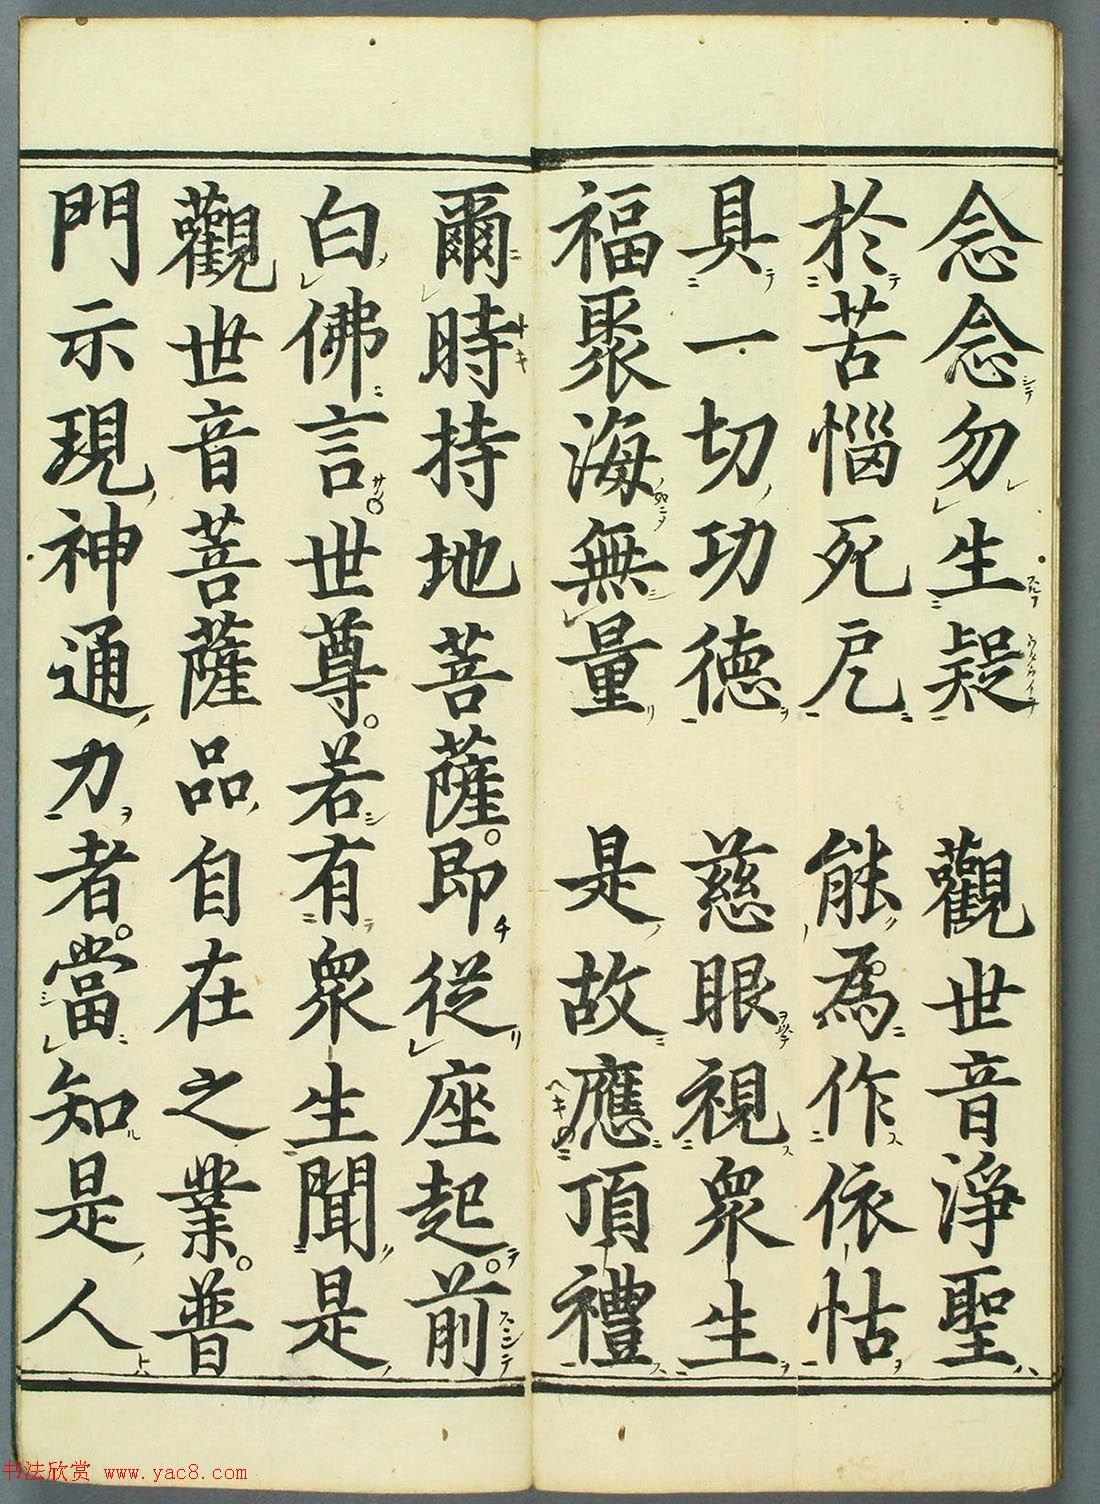 念念勿生疑　觀世音淨聖
於苦惱死戹　能為作依怙
具一切功德　慈眼視眾生
福聚海無量　是故應頂禮
爾時持地菩薩。即從座起。前
白佛言。世尊。若有眾生聞是
觀世音菩薩品自在之業。普
門示現神通力者。當知是人
书法欣赏 www.yac8.com